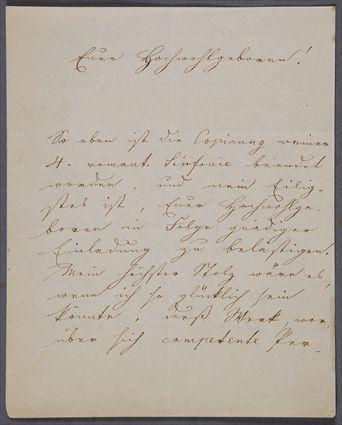 Euer Hochwohlgeboren!
So eben ist die Copirung meiner
4. romant. Sinfonie beendet
worden, und mein Eilig-
stes ist, Euer Hochwohlge-
boren in Folge gnädiger
Einladung zu belästigen.
Mein höchster Stolz wäre es,
wenn ich so glücklich sein
könnte, dieß Werk, wor-
über sich competente Per-